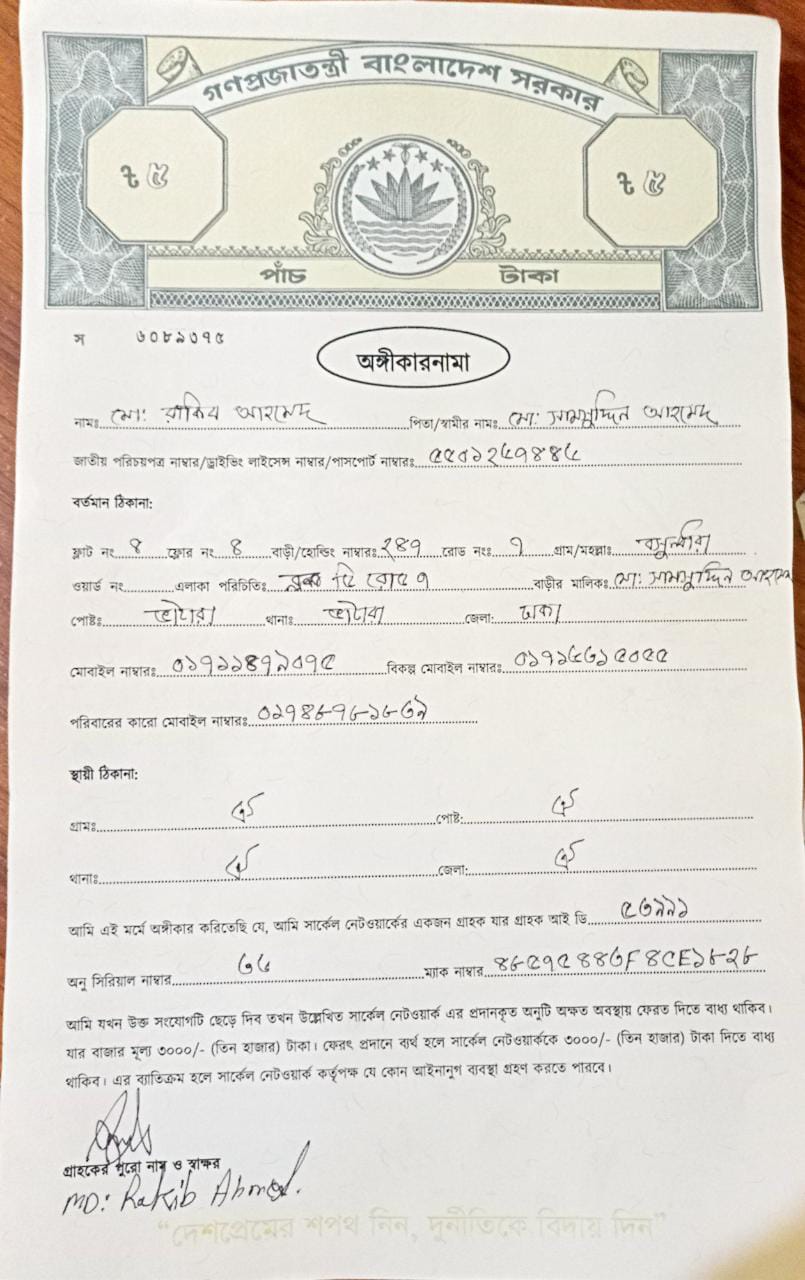 গণপ্রজাতন্ত্রী বাংলাদেশ সরকার
৳ ৫ ৳ ৫
পাঁচ টাকা
স ৬০৮৯৩৭৫
অঙ্গীকারনামা
নামঃ মো: রাকিব আহমেদ পিতা/স্বামীর নামঃ মো: সামসুদ্দিন আহমেদ
জাতীয় পরিচয়পত্র নাম্বার/ড্রাইভিং লাইসেন্স নাম্বার/পাসপোর্ট নাম্বারঃ
বর্তমান ঠিকানা:
ফ্লাট নং ৪ ফ্লোর নং ৪ বাড়ী/হোল্ডিং নাম্বারঃ ২৪৭ রোড নংঃ ৭ গ্রাম/মহল্লাঃ বসুন্ধরা
ওয়ার্ড নং এলাকা পরিচিতিঃ ব্লক সি রোড ৭ বাড়ীর মালিকঃ মো: সামসুদ্দিন আহমেদ
পোষ্টঃ ভাটারা থানাঃ ভাটারা জেলা: ঢাকা
মোবাইল নাম্বারঃ ০১৭১১৪৭৯০৭৫ বিকল্প মোবাইল নাম্বারঃ
পরিবারের কারো মোবাইল নাম্বারঃ
স্থায়ী ঠিকানা:
গ্রামঃ ঐ পোষ্ট: ঐ
থানাঃ ঐ জেলা: ঐ
আমি এই মর্মে অঙ্গীকার করিতেছি যে, আমি সার্কেল নেটওয়ার্কের একজন গ্রাহক যার গ্রাহক আই ডি ৫৩৯৯১
অনু সিরিয়াল নাম্বার ম্যাক নাম্বার
আমি যখন উক্ত সংযোগটি ছেড়ে দিব তখন উল্লেখিত সার্কেল নেটওয়ার্ক এর প্রদানকৃত অনুটি অক্ষত অবস্থায় ফেরত দিতে বাধ্য থাকিব।
যার বাজার মূল্য ৩০০০/- (তিন হাজার) টাকা। ফেরৎ প্রদানে ব্যর্থ হলে সার্কেল নেটওয়ার্ককে ৩০০০/- (তিন হাজার) টাকা দিতে বাধ্য
থাকিব। এর ব্যতিক্রম হলে সার্কেল নেটওয়ার্ক কর্তৃপক্ষ যে কোন আইনানুগ ব্যবস্থা গ্রহণ করতে পারবে।
গ্রাহকের পুরো নাম ও স্বাক্ষর
MD: Rakib Ahmed.
“দেশপ্রেমের শপথ নিন, দুর্নীতিকে বিদায় দিন”